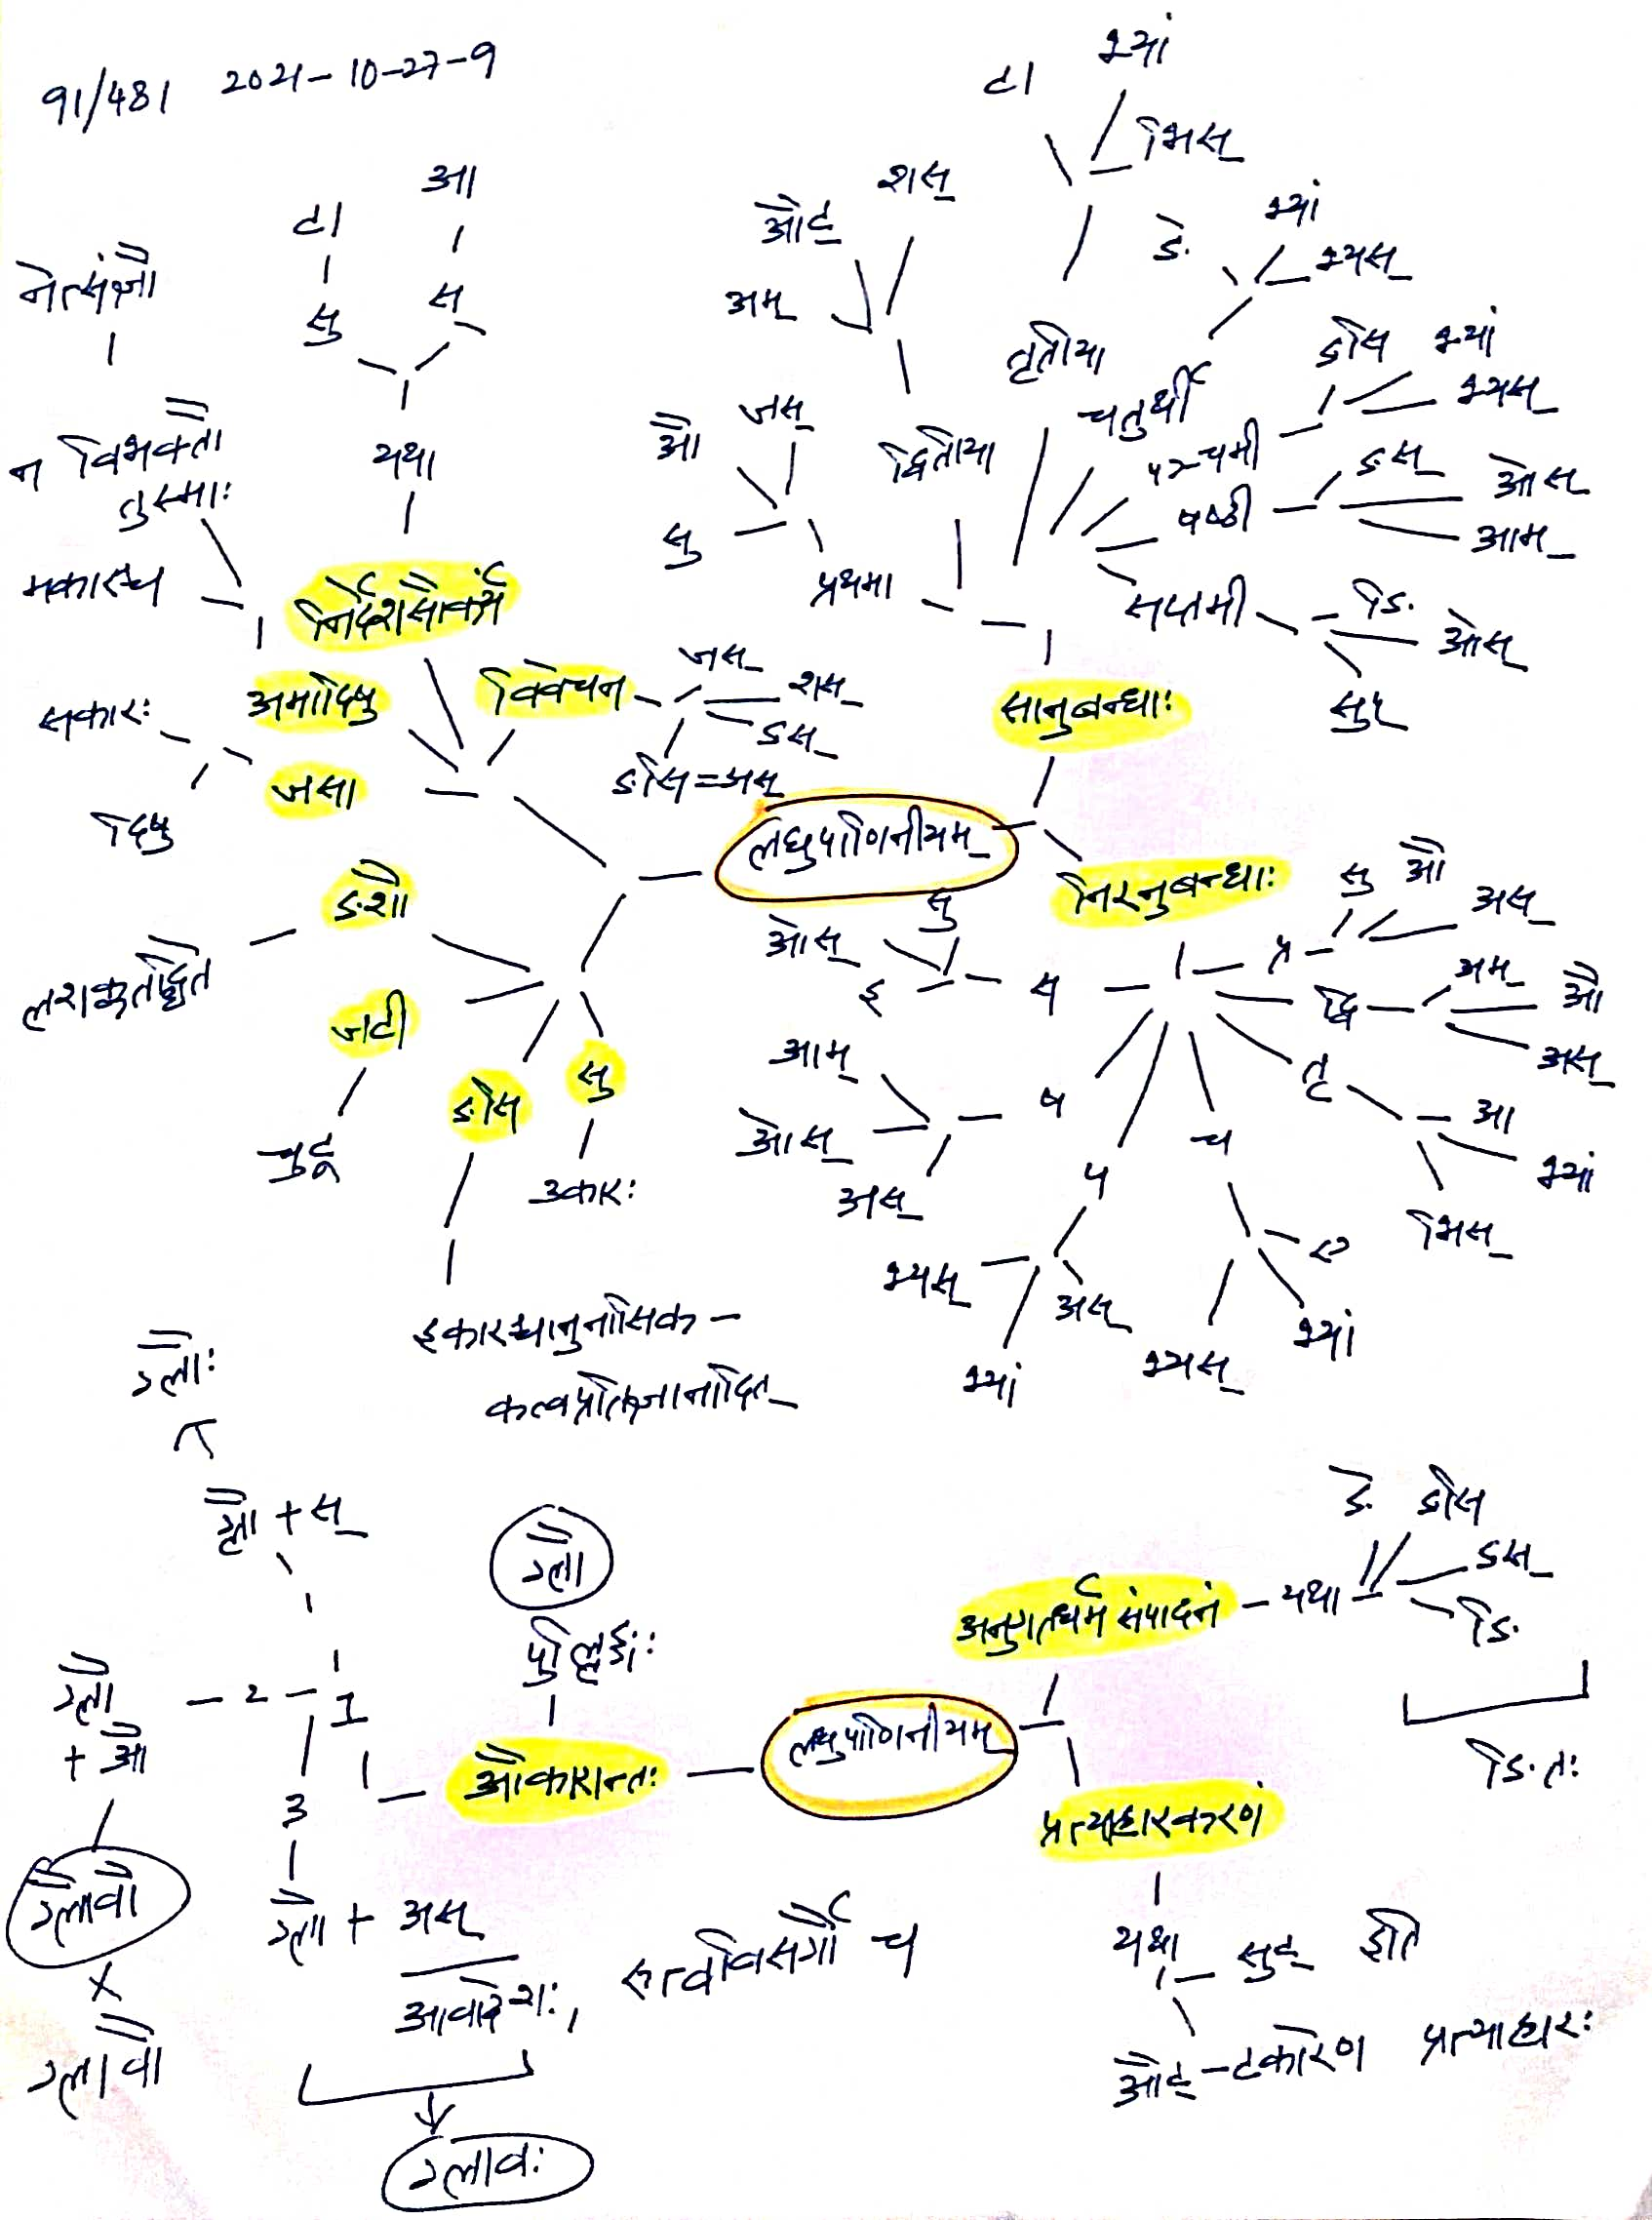 91/481 2021-10-27-9
टा भ्यां
भिस्
आ
टा
सु स्
नेत्संज्ञौ
न विभक्तौ
तुस्माः
मकारस्य
यथा
निर्देशसौकर्यं
औट् शस्
अम्
ङे भ्यां
भ्यस्
तृतीया
चतुर्थी
ङसि भ्यां
भ्यस्
पञ्चमी
औ जस्
सु
द्वितीया
प्रथमा
षष्ठी ङस् ओस्
आम्
सप्तमी ङि ओस्
सुप्
सकारः अमादिषु विवेचन जस्
शस्
ङस्
ङसि=अस्
दिषु जसा
सानुबन्धाः
लघुपाणिनीयम्
निरनुबन्धाः
ङशौ
लशक्वतद्धिते
जटौ
चुटू
ङसि सु
उकारः
इकारश्चानुनासिक-
कत्वप्रतिज्ञानादित्
प्र सु औ
अस्
द्वि अम् औ
अस्
तृ आ
भ्यां
भिस्
च ए
भ्यां
भ्यस्
प अस्
भ्यस्
भ्यां
ष आम्
ओस्
अस्
स सु
ओस्
इ
ग्लौः
ग्लौ + स्
ग्लौ
पुंल्लिङ्गः
ग्लौ - 2 - 1
+ औ
3
औकारान्तः
लघुपाणिनीयम्
अनुगतधर्म संपादनं - यथा ङे ङसि
ङस्
ङि
ङितः
प्रत्याहारकरणं
यथा सुट् इति
औट्-टकारेण प्रत्याहारः
ग्लावौ
x
ग्लावौ
ग्लौ + अस्
आवादेशः, रुत्वविसर्गौ च
ग्लावः